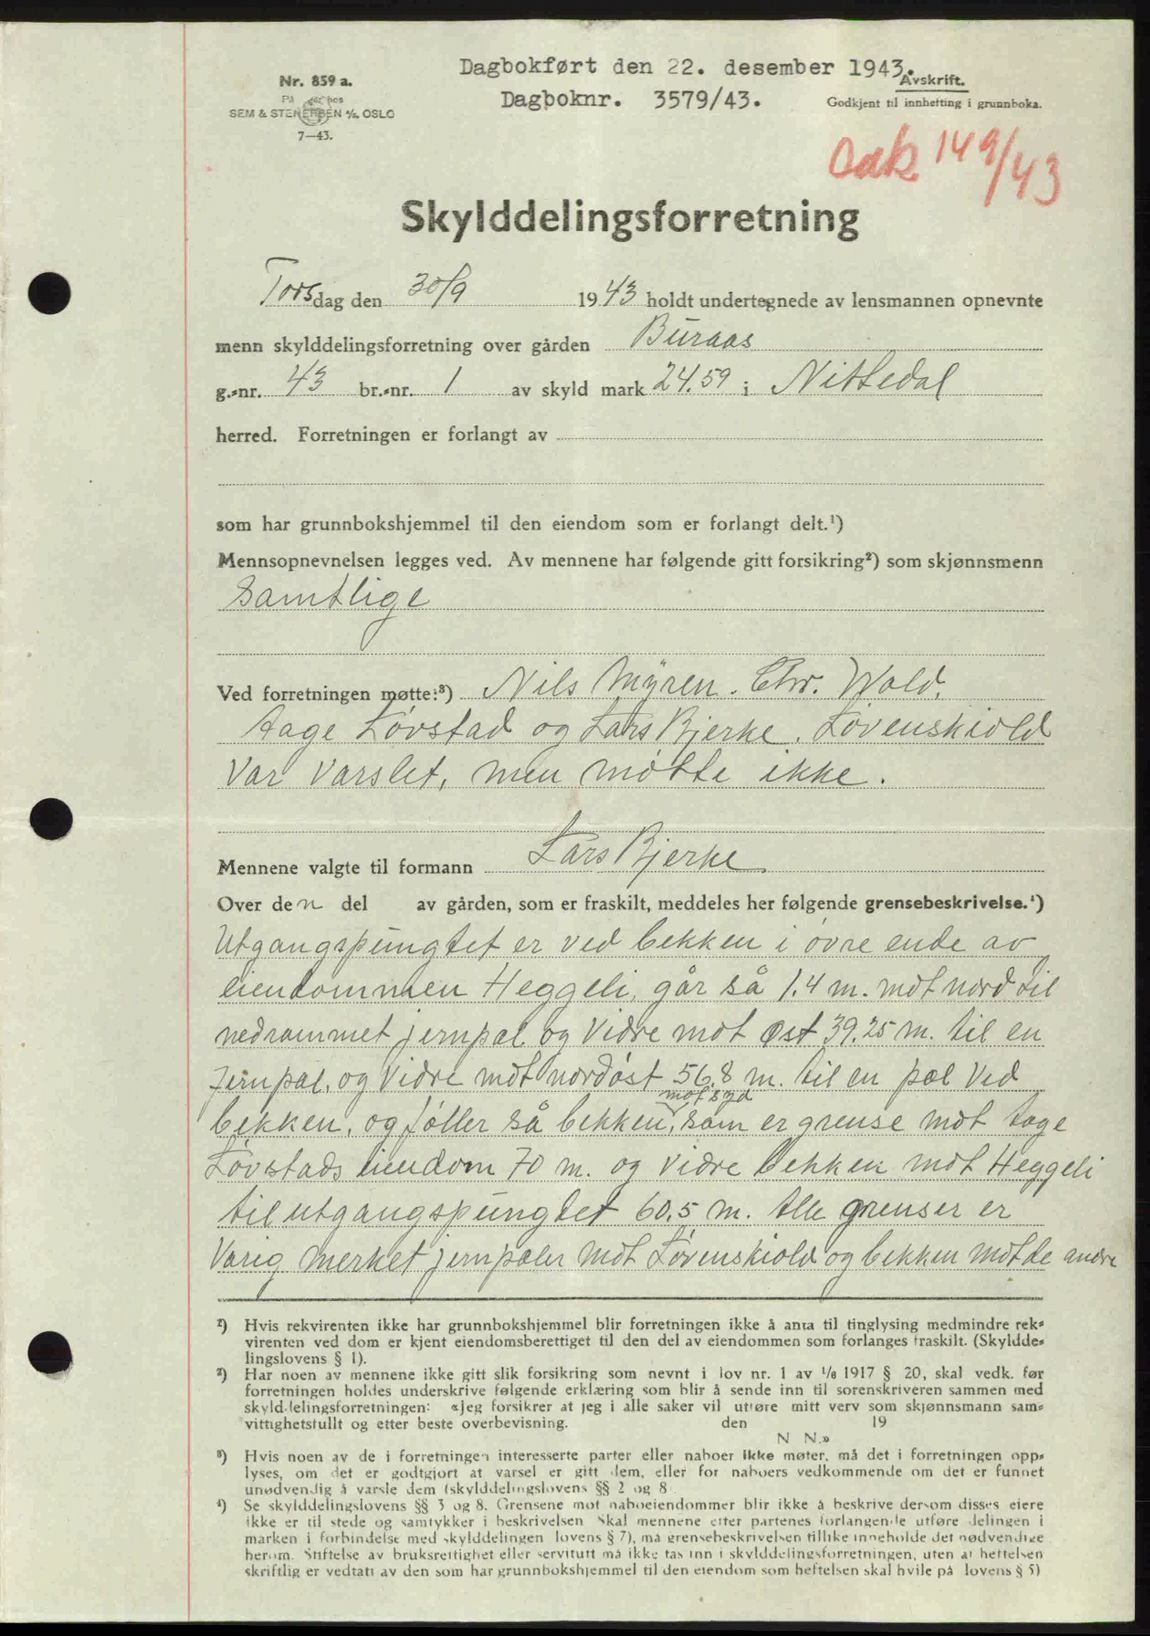 Dagbokført den 22. desember 1943.
Nr. 859 a.
Avskrift.
Dagboknr. 3579/43.
Godkjent til innhefting i grunnboka.
På lager hos
SEM & STENERSEN A/S, OSLO
7—43.
149/43
Skylddelingsforretning
Torsdag den 30/9 1943 holdt undertegnede av lensmannen opnevnte
menn skylddelingsforretning over gården Buraas
g.-nr. 43 br.-nr. 1 av skyld mark 24.59 i Nittedal
herred. Forretningen er forlangt av
som har grunnbokshjemmel til den eiendom som er forlangt delt.¹)
Mennsopnevnelsen legges ved. Av mennene har følgende gitt forsikring²) som skjønnsmenn
Samtlige
Ved forretningen møtte:³) Nils Myren. Chr. Wold.
Aage Løvstad og Lars Bjerke. Løvenskiold
var varslet, men møtte ikke.
Mennene valgte til formann Lars Bjerke
Over den del av gården, som er fraskilt, meddeles her følgende grensebeskrivelse.⁴)
Utgangspungtet er ved bekken i øvre ende av
eiendommen Heggeli, går så 1.4 m. mot nord til
nedrammet jernpæl og vidre mot øst 39.25 m. til en
jernpæl, og vidre mot nordøst 56.8 m. til en pæl ved
mot syd
bekken, og føller så bekken, som er grense mot Aage
Løvstads eiendom 70 m. og vidre bekken mot Heggeli
til utgangspungtet 60.5 m. Alle grenser er
varig merket jernpæler mot Løvenskiold og bekken mot de andre
¹) Hvis rekvirenten ikke har grunnbokshjemmel blir forretningen ikke å anta til tinglysing medmindre rek-
virenten ved dom er kjent eiendomsberettiget til den del av eiendommen som forlanges fraskilt. (Skyldde-
lingslovens § 1).
²) Har noen av mennene ikke gitt slik forsikring som nevnt i lov nr. 1 av 1/6 1917 § 20, skal vedk. før
forretningen holdes underskrive følgende erklæring som blir å sende inn til sorenskriveren sammen med
skylddelingsforretningen: «Jeg forsikrer at jeg i alle saker vil utføre mitt verv som skjønnsmann sam-
vittighetsfullt og etter beste overbevisning. den 19
N N.»
³) Hvis noen av de i forretningen interesserte parter eller naboer ikke møter, må det i forretningen opp-
lyses, om det er godtgjort at varsel er gitt dem, eller for naboers vedkommende om det er funnet
unødvendig å varsle dem (skylddelingslovens §§ 2 og 8
⁴) Se skylddelingslovens §§ 3 og 8. Grensene mot naboeiendommer blir ikke å beskrive dersom disses eiere
ikke er til stede og samtykker i beskrivelsen Skal mennene etter partenes forlangende utføre delingen i
marken i forbindelse med skylddelingen lovens § 7), må grensebeskrivelsen tillike inneholde det nødvendige
herom. Stiftelse av bruksrettighet eller servitutt må ikke tas inn i skylddelingsforretningen, uten at heftelsen
skriftlig er vedtatt av den som har grunnbokshjemmel til den eiendom som heftelsen skal hvile på lovens § 5)